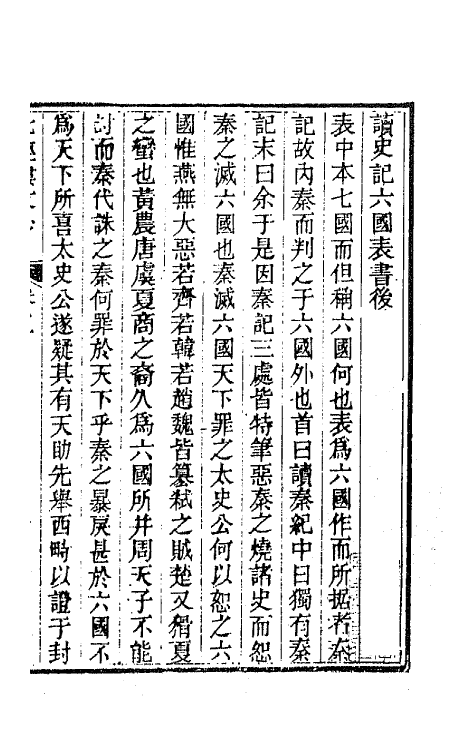 讀史記六國表書後
表中本七國而但稱六國何也表爲六國作而所据者秦
記故內秦而判之于六國外也首曰讀秦紀中曰獨有秦
記末曰余于是因秦記三處皆特筆惡秦之燒諸史而怨
秦之滅六國也秦滅六國天下罪之太史公何以恕之六
國惟燕無大惡若齊若韓若趙魏皆篡弒之賊楚又猾夏
之蠻也黃農唐虞夏商之裔久爲六國所并周天子不能
討而秦代誅之秦何罪於天下乎秦之暴戾甚於六國不
爲天下所喜太史公遂疑其有天助先舉西畤以證于封